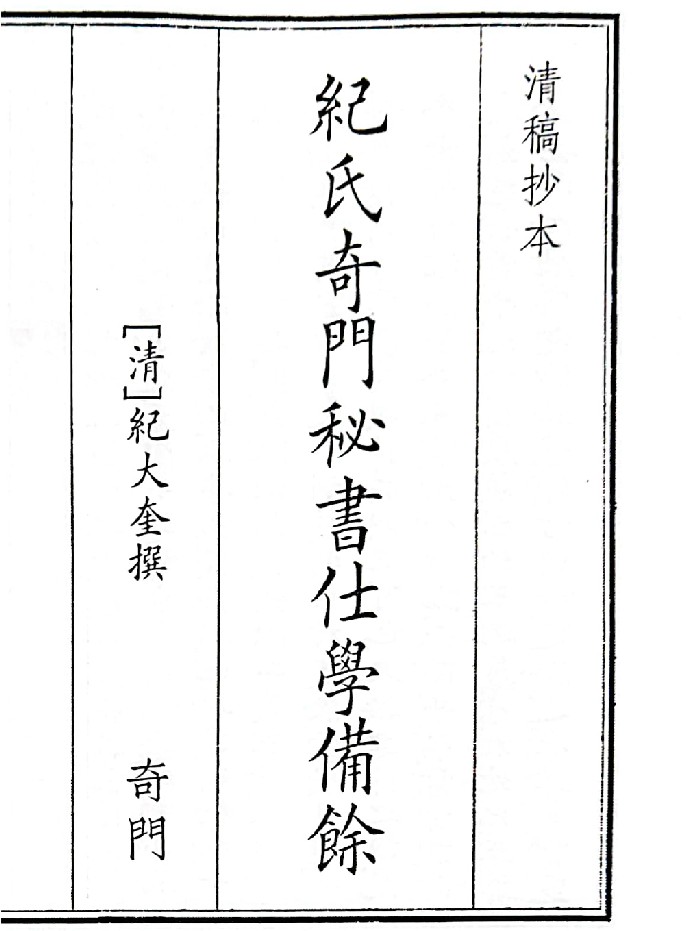 清稿抄本
紀氏奇門秘書仕學備餘
［清］紀大奎撰
奇門